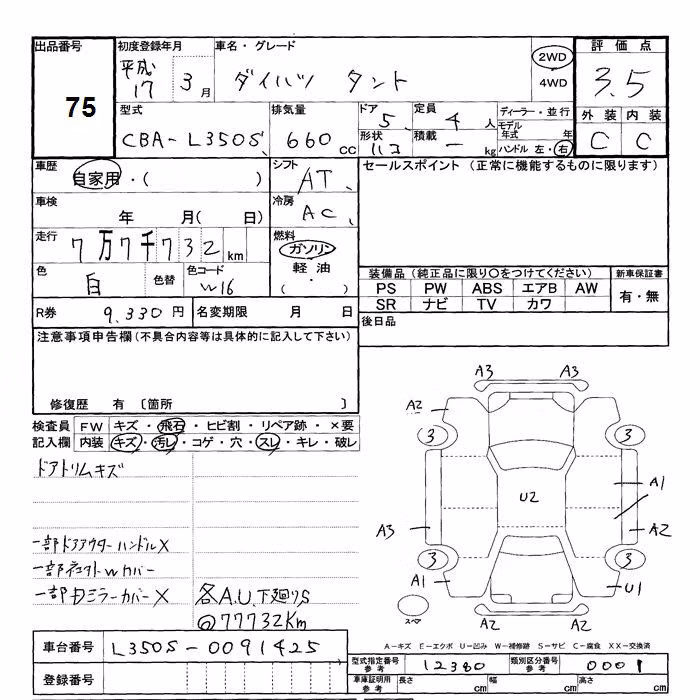 出品番号 初度登録年月 車名・グレード 評価点
75
平成17 3月 ダイハツ タント 2WD 4WD 3.5
型式 排気量 ドア 定員 ディーラー・並行 外装 内装
CBA-L350S 660cc 5 4人 モデル年式 年 C C
形状 積載 ハコ － kg ハンドル 左・右
車歴 自家用・( ) シフト AT セールスポイント (正常に機能するものに限ります)
車検 年 月( 日) 冷房 AC
走行 7万7千732km 燃料 ガソリン 軽油 ( ・ )
色 白 色替 色コード W16
装備品 (純正品に限り○をつけてください) 新車保証書
PS PW ABS エアB AW 有・無
SR ナビ TV カワ
R券 9,330円 名変期限 月 日 後日品
注意事項申告欄 (不具合内容等は具体的に記入して下さい)
修復歴 有 〔箇所 〕
検査員 FW キズ・飛石・ヒビ割・リペア跡・×要
記入欄 内装 キズ・汚レ・コゲ・穴・スレ・キレ・破レ
ドアトリムキズ
一部ドアアウターハンドルX
一部
一部ドミラーカバーX
各A.U.下廻りS
@77732Km
A3 A3
A2
3 3
A1
U2
A3 A2
3 3
A1 U1
スペア
A2 A2
A－キズ E－エクボ U－凹み W－補修跡 S－サビ C－腐食 XX－交換済
車台番号 L350S-0091425
登録番号
型式指定番号 参考 12380 類別区分番号 参考 0001
車庫証明用 参考 長さ cm 幅 cm 高さ cm